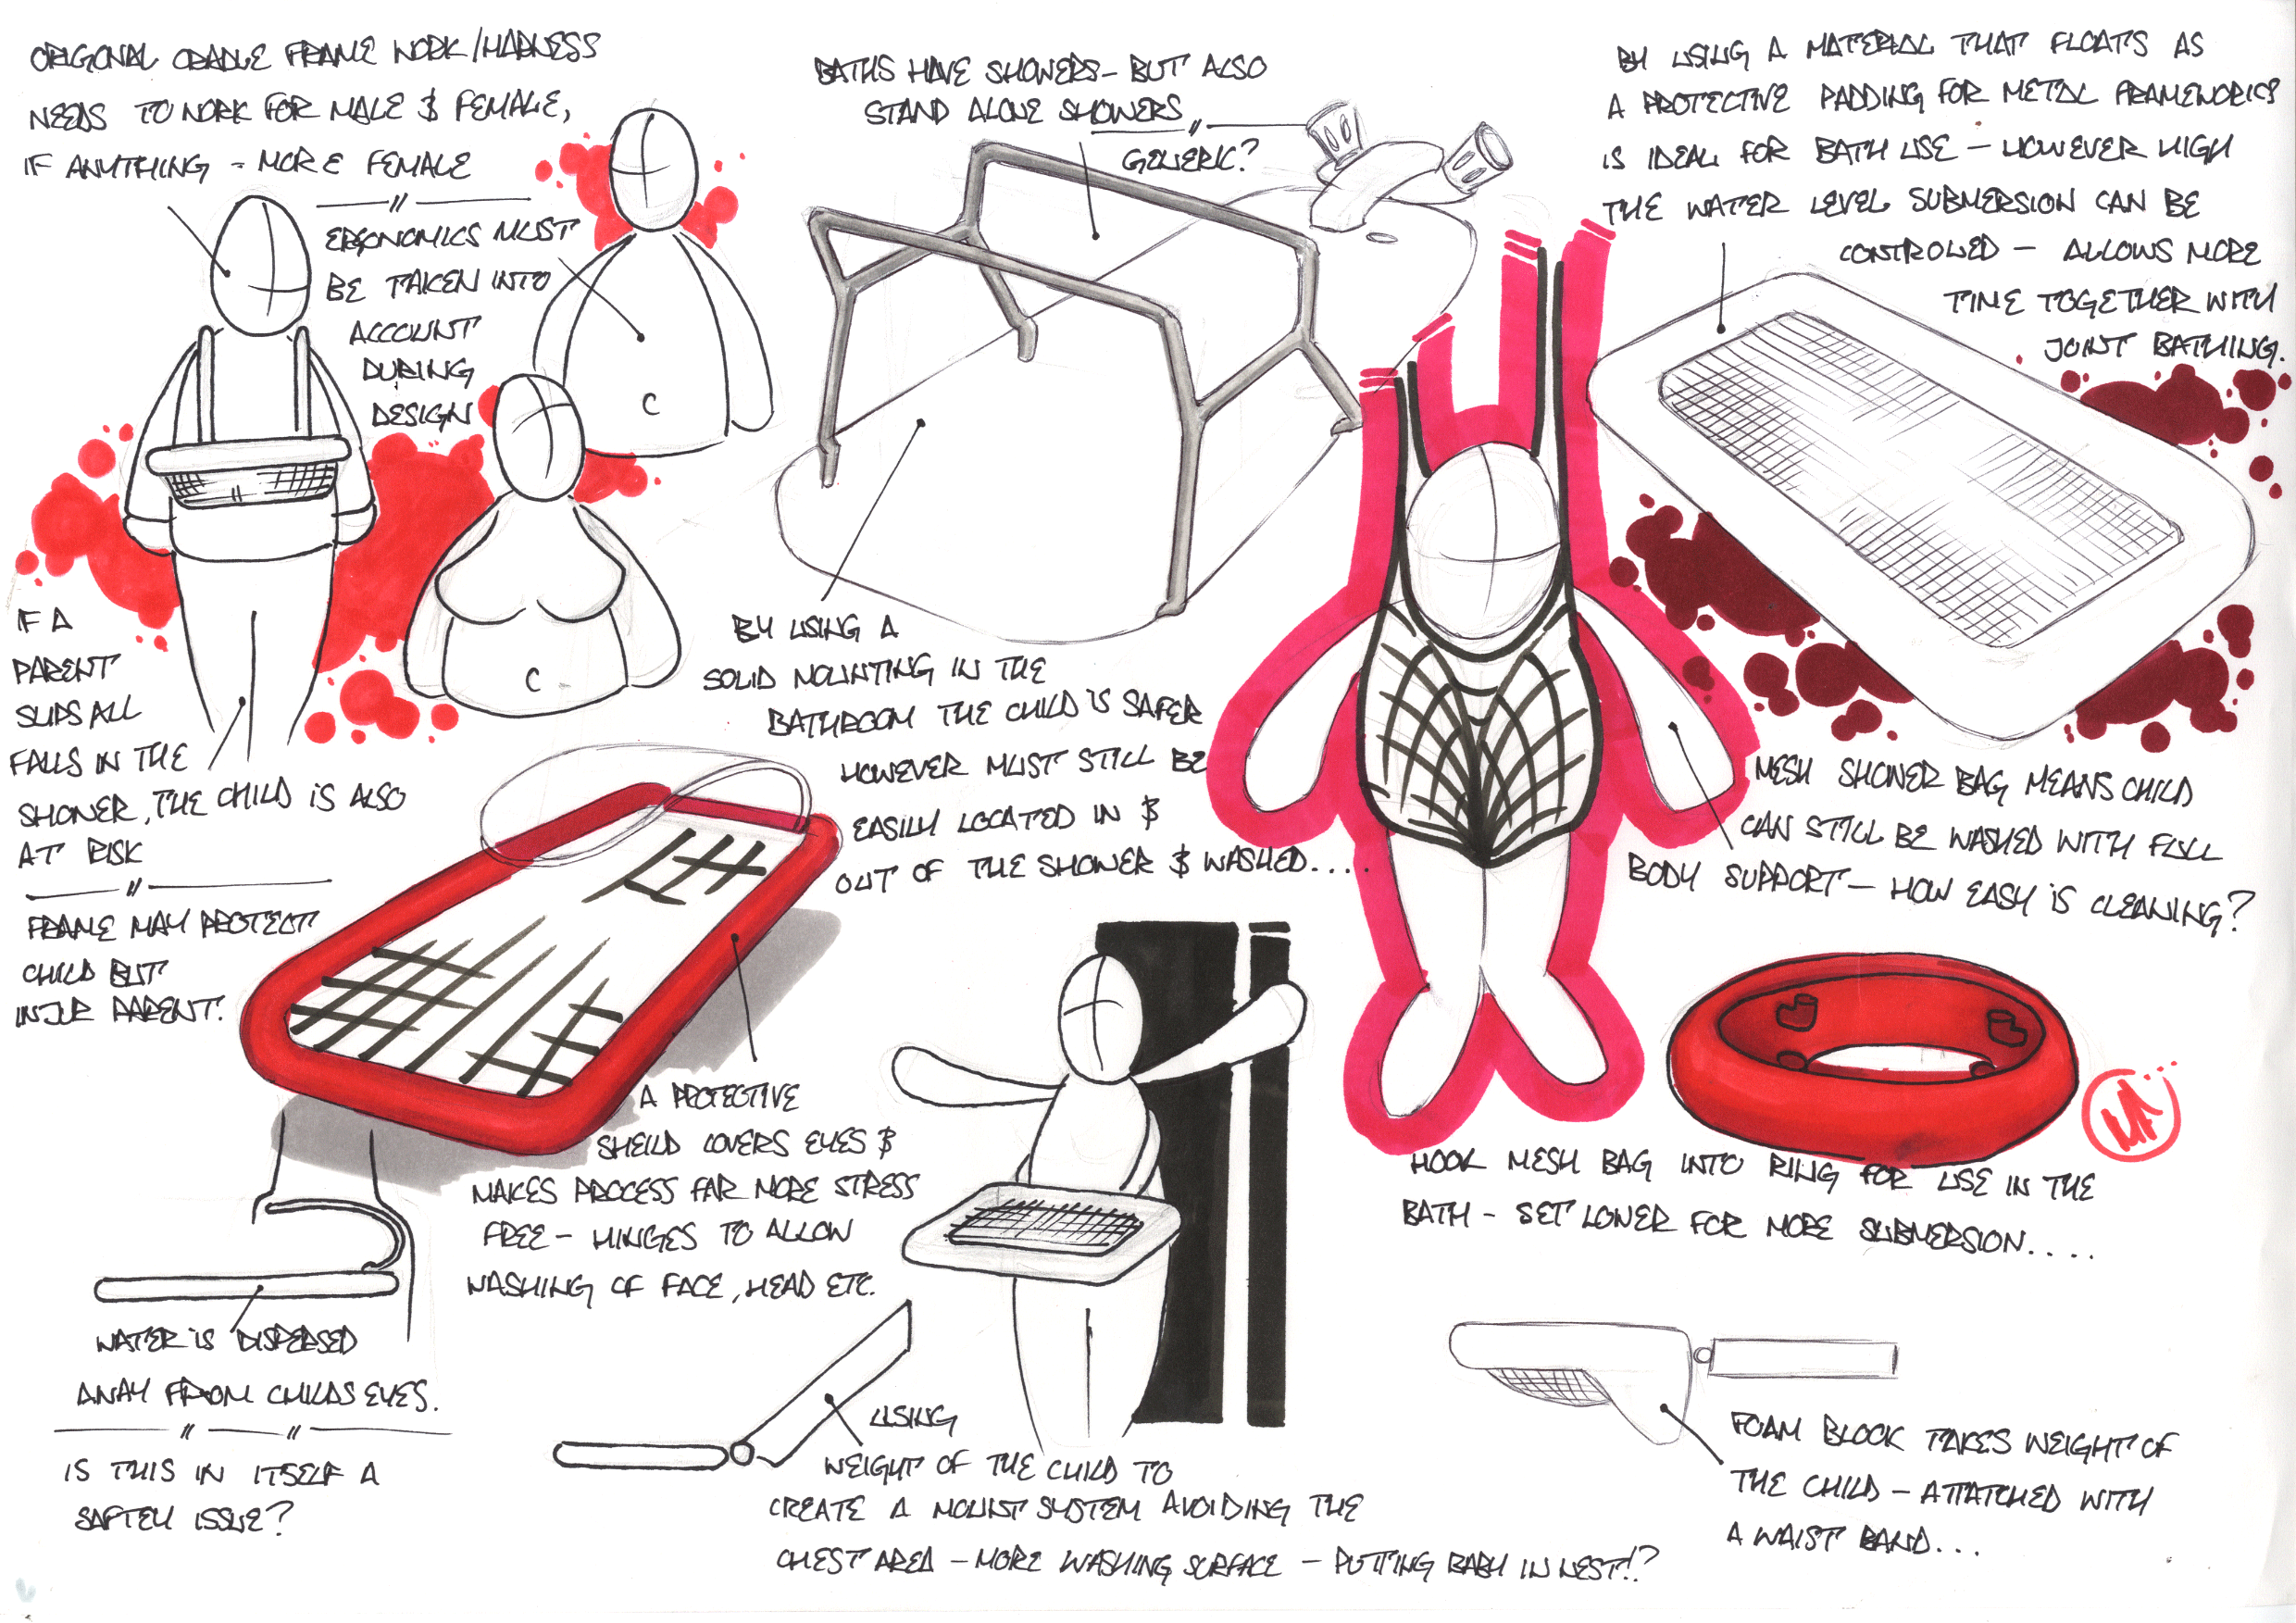 ORIGONAL CRADLE FRAME WORK/HARNESS
NEEDS TO WORK FOR MALE & FEMALE,
IF ANYTHING - MORE FEMALE
ERGONOMICS MUST
BE TAKEN INTO
ACCOUNT
DURING
DESIGN
C
C
IF A
PARENT
SLIPS ALL
FALLS IN THE
SHOWER, THE CHILD IS ALSO
AT RISK
FRAME MAY PROTECT
CHILD BUT
INJUR PARENT.
BATHS HAVE SHOWERS - BUT ALSO
STAND ALONE SHOWERS
GENERIC?
BY USING A
SOLID MOUNTING IN THE
BATHROOM THE CHILD IS SAFER
HOWEVER MUST STILL BE
EASILY LOCATED IN &
OUT OF THE SHOWER & WASHED....
BY USING A MATERIAL THAT FLOATS AS
A PROTECTIVE PADDING FOR METAL FRAMEWORKS
IS IDEAL FOR BATH USE - HOWEVER HIGH
THE WATER LEVEL SUBMERSION CAN BE
CONTROLED - ALLOWS MORE
TIME TOGETHER WITH
JOINT BATHING.
MESH SHOWER BAG MEANS CHILD
CAN STILL BE WASHED WITH FULL
BODY SUPPORT - HOW EASY IS CLEANING?
HOOK MESH BAG INTO RING FOR USE IN THE
BATH - SET LOWER FOR MORE SUBMERSION....
A PROTECTIVE
SHEILD COVERS EYES &
MAKES PROCESS FAR MORE STRESS
FREE - HINGES TO ALLOW
WASHING OF FACE, HEAD ETC.
WATER IS DISPERSED
AWAY FROM CHILDS EYES.
IS THIS IN ITSELF A
SAFTEY ISSUE?
USING
WEIGHT OF THE CHILD TO
CREATE A MOUNT SYSTEM AVOIDING THE
CHEST AREA - MORE WASHING SURFACE - PUTTING BABY IN NEST!?
FOAM BLOCK TAKES WEIGHT OF
THE CHILD - ATTATCHED WITH
A WAIST BAND...